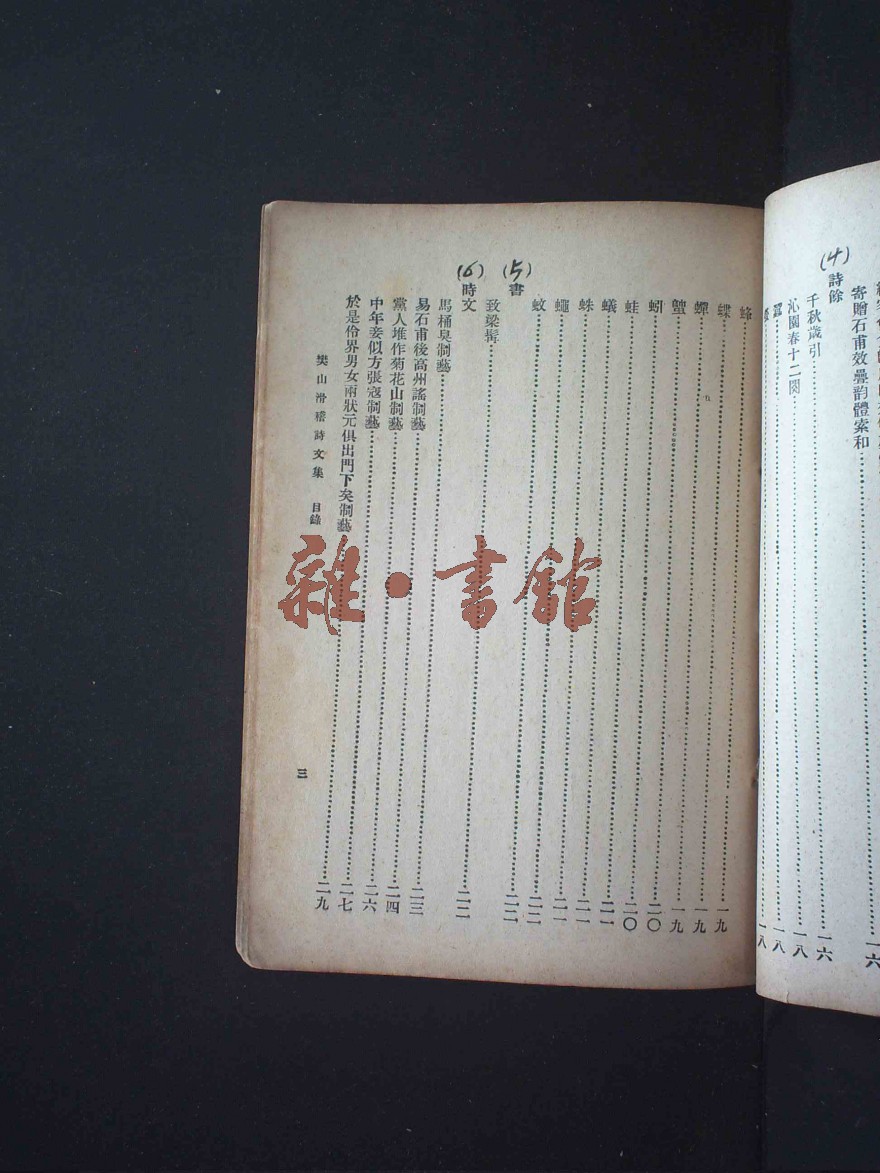 寄贈石甫效疊韵體索和……一六
(4)
詩餘
千秋歲引……一六
沁園春十二闋……一八
一八
一八
蜂……一九
蝶……一九
蟬……一九
蟫……二〇
蚓……二〇
蛙……二一
蟻……二一
蛛……二一
蠅……二二
蚊……二二
(5)
書
致梁髯……二二
(6)
時文
馬桶臭制藝……二三
易石甫後高州謠制藝……二四
黨人堆作菊花山制藝……二六
中年妾似方張寇制藝……二七
於是伶界男女兩狀元俱出門下矣制藝……二九
樊山滑稽詩文集 目錄
三
雜·書館